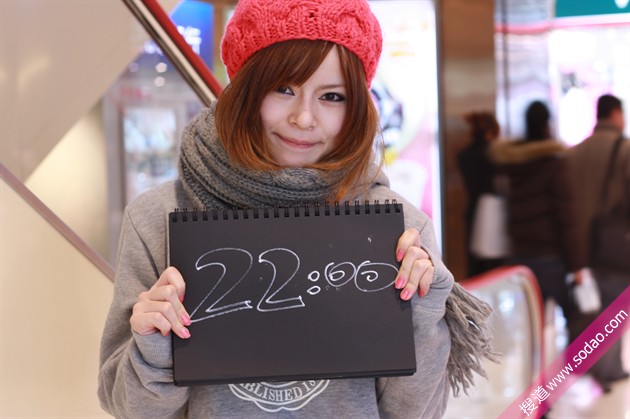 22:00
ESTABLISHED 18
搜道 www.sodao.com